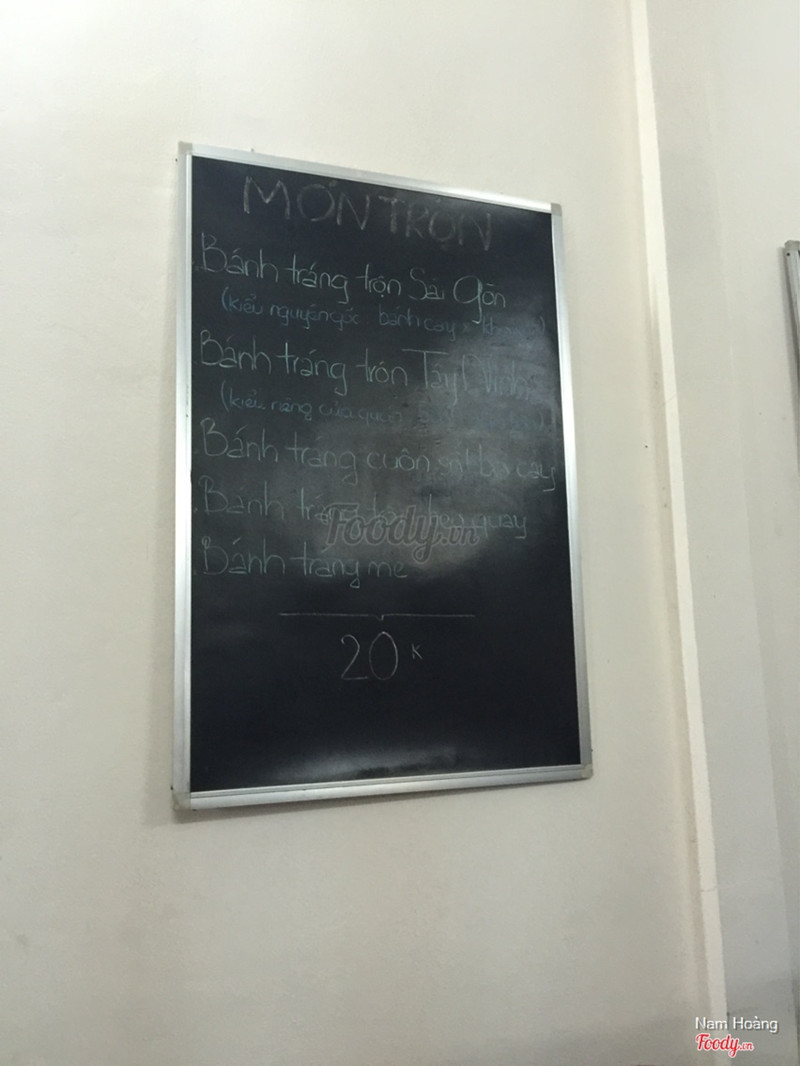 MÓN TRỘN
Bánh tráng trộn Sài Gòn
(kiểu nguyên gốc bánh cay
Bánh tráng trón Tây Ninh
(kiểu riêng của quán
Bánh tráng cuốn sốt bơ cay
Bánh quay
Bánh tráng me
20 K
Foody.vn
Nam Hoàng
Foody.vn